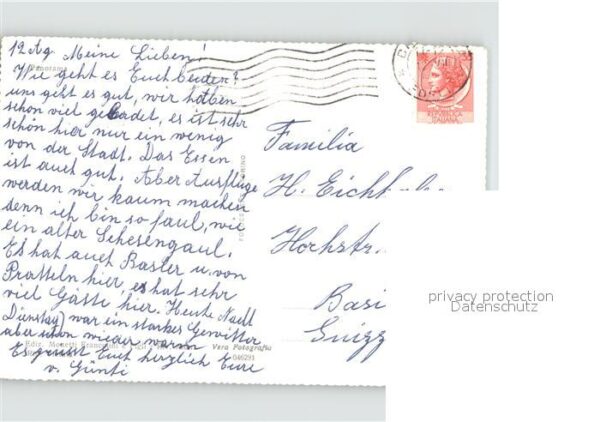 12 Ag. Meine Lieben!
Panorama
Wie geht es Euch beiden?
uns geht es gut, wir haben
schon viel gebadet, es ist sehr
schön hier nur ein wenig
von der Stadt. Das Essen
ist auch gut. Aber Ausflüge
werden wir kaum machen
denn ich bin so faul, wie
ein alter Schesengaul.
Es hat auch Basler u. von
Pratteln hier, es hat sehr
viel Gäste hier. Heute Nacht
Dienstag war ein starkes Gewitter
aber schon wieder warm
Es grüsst Euch herzlich Eure
v. Günti
Vera Fotografia
046291
REPVBBLICA
ITALIANA
Familia
H. Eich
Hochstr.
Basi
Suizz
privacy protection
Datenschutz